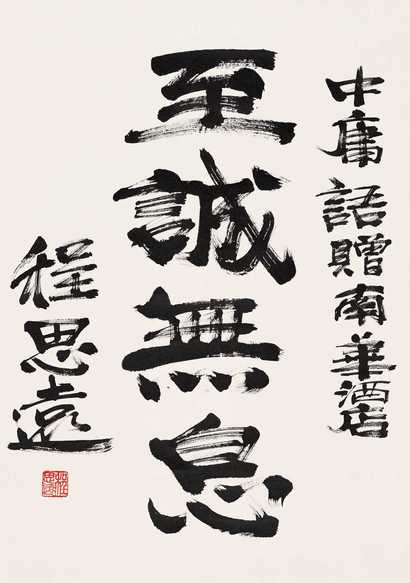 中庸語贈南華酒店
至誠無息
程思遠